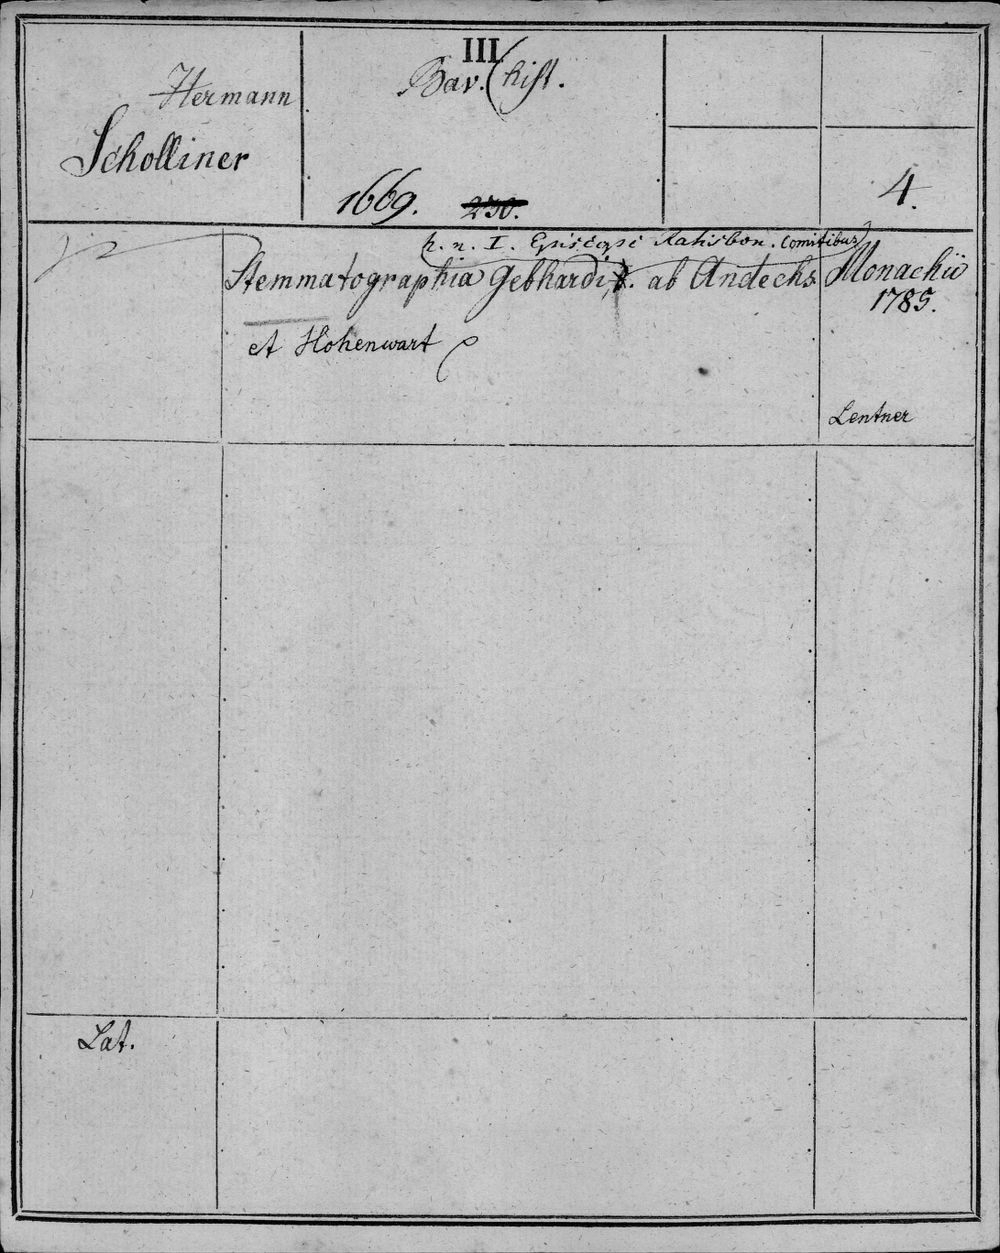 III.
Hermann
Scholliner
Bav. hist.
1669. 230.
4.
h. n. I. Episcopi Ratisbon. Comitibus
Stemmatographia Gebhardi ab Andechs
et Hohenwart
Monachii
1785.
Lentner
Lat.